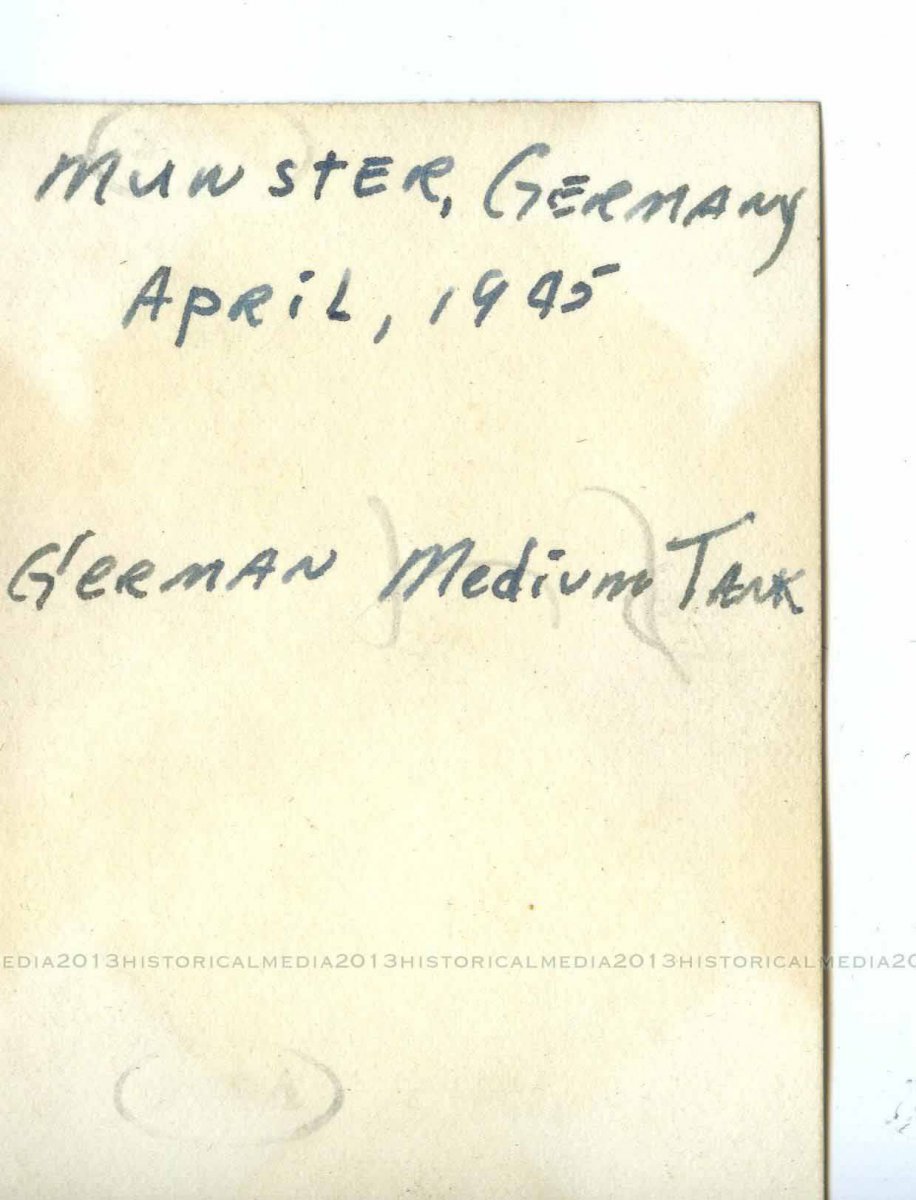 Munster, Germany
April, 1945
German Medium Tank
EDIA2013HISTORICALMEDIA2013HISTORICALMEDIA2013HISTORICALMEDIA20